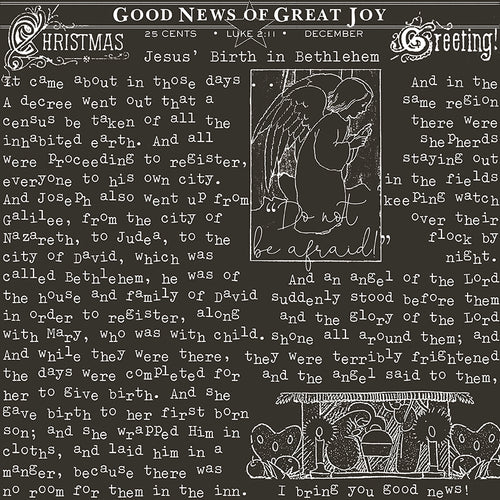 GOOD NEWS OF GREAT JOY
CHRISTMAS
25 CENTS • LUKE 2:11 • DECEMBER
Greeting!
Jesus' Birth in Bethlehem
It came about in those days
A decree went out that a
census be taken of all the
inhabited earth. And all
were proceeding to register,
everyone to his own city.
And Joseph also went up from
Galilee, from the city of
Nazareth, to Judea, to the
city of David, which was
called Bethlehem, he was of
the house and family of David
in order to register, along
with Mary, who was with child.
And while they were there,
the days were completed for
her to give birth. And she
gave birth to her first born
son; and she wrapped Him in
cloths, and laid him in a
manger, because there was
no room for them in the inn.
"Do not
be afraid!"
And in the
same region
there were
shepherds
staying out
in the fields
keeping watch
over their
flock by
night.
And an angel of the Lord
suddenly stood before them
and the glory of the Lord
shone all around them; and
they were terribly frightened
and the angel said to them,
I bring you good news!